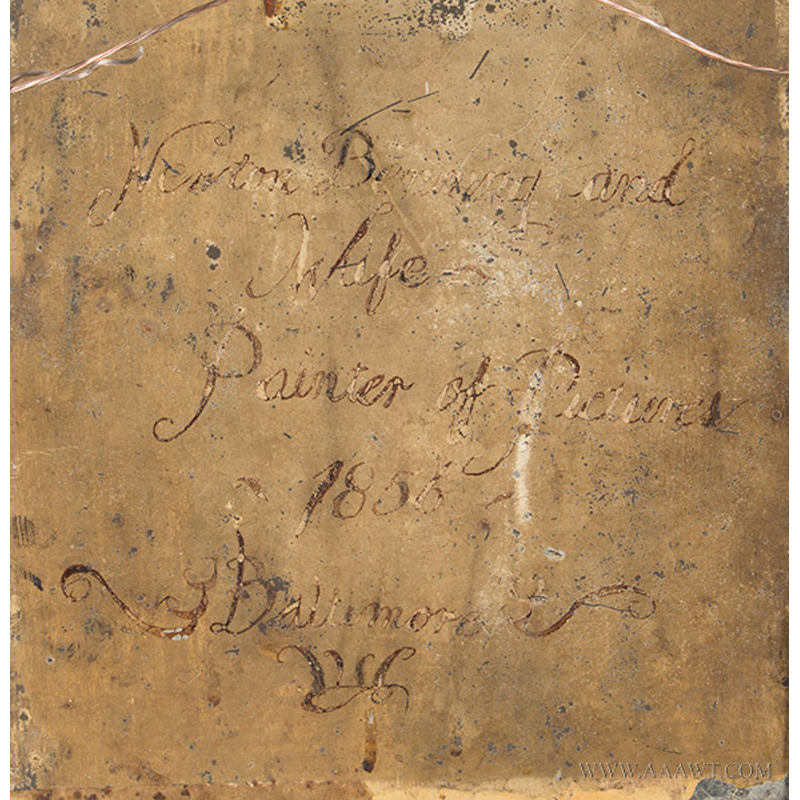 Newton Benning and
Wife
Painter of Pictures
1856
Baltimore
WWW.AAAWT.COM